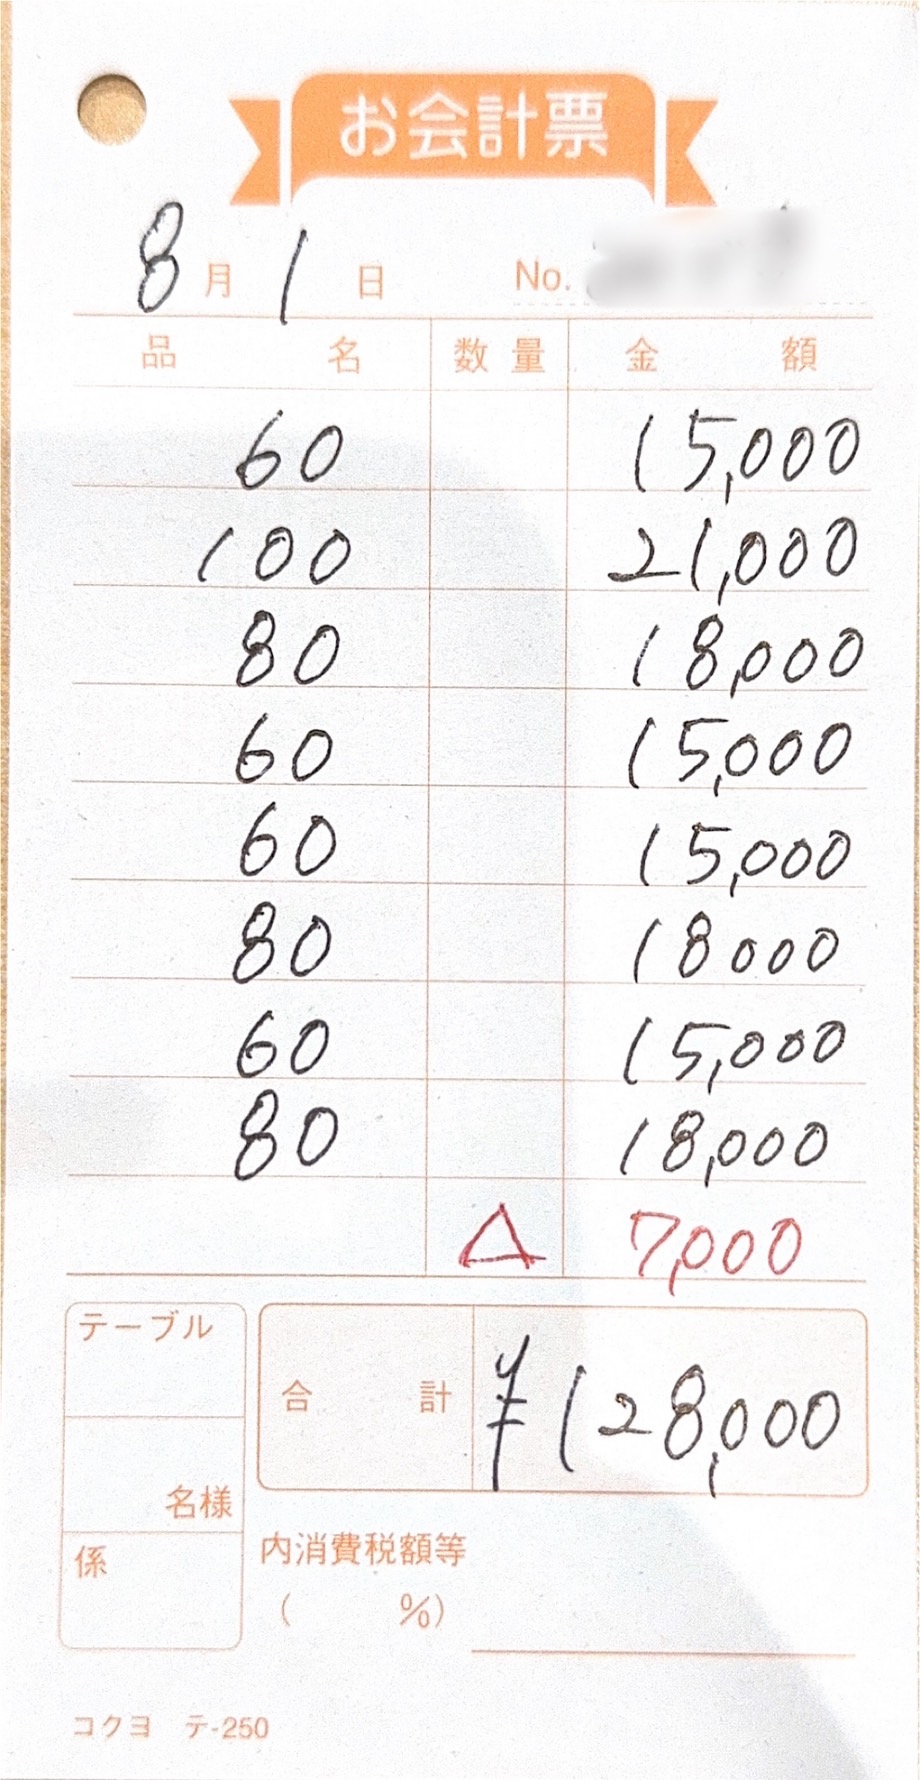 お会計票
8月1日 No.
品名 数量 金額
60 15,000
100 21,000
80 18,000
60 15,000
60 15,000
80 18000
60 15,000
80 18,000
△ 7,000
テーブル
合計 ¥128,000
名様
係
内消費税額等
( %)
コクヨ テ-250